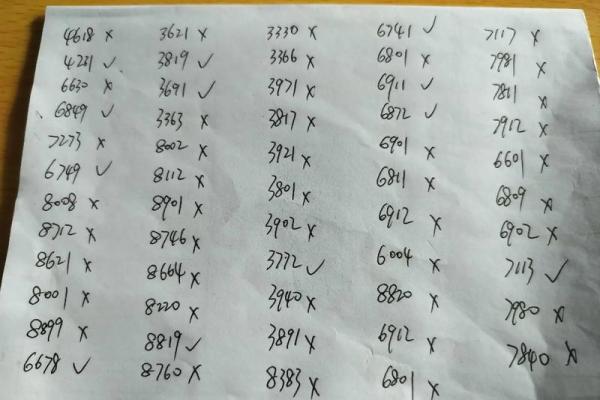 4618 ×
4221 ✓
6630 ×
6849 ✓
7273 ×
6749 ✓
8008 ×
8712 ×
8621 ×
8001 ×
8899 ×
6678 ✓
3621 ×
3819 ✓
3691 ✓
3363 ×
8002 ×
8112 ×
8901 ×
8746 ×
8664 ×
8220 ×
8819 ✓
8760 ×
3330 ×
3366 ×
3971 ×
3817 ×
3921 ×
3801 ×
3902 ×
3772 ✓
3940 ×
3891 ×
8383 ×
6741 ✓
6801 ×
6911 ✓
6872 ✓
6901 ×
6811 ×
6912 ×
6004 ×
8820 ×
6912 ×
6801 ×
7117 ×
7981 ×
7811 ×
7912 ×
6601 ×
6809 ×
6902 ×
7113 ✓
7980 ×
7840 ×